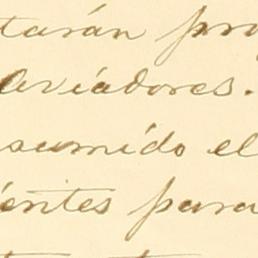 tarán pro
aviadores.
sumido el
ientes para